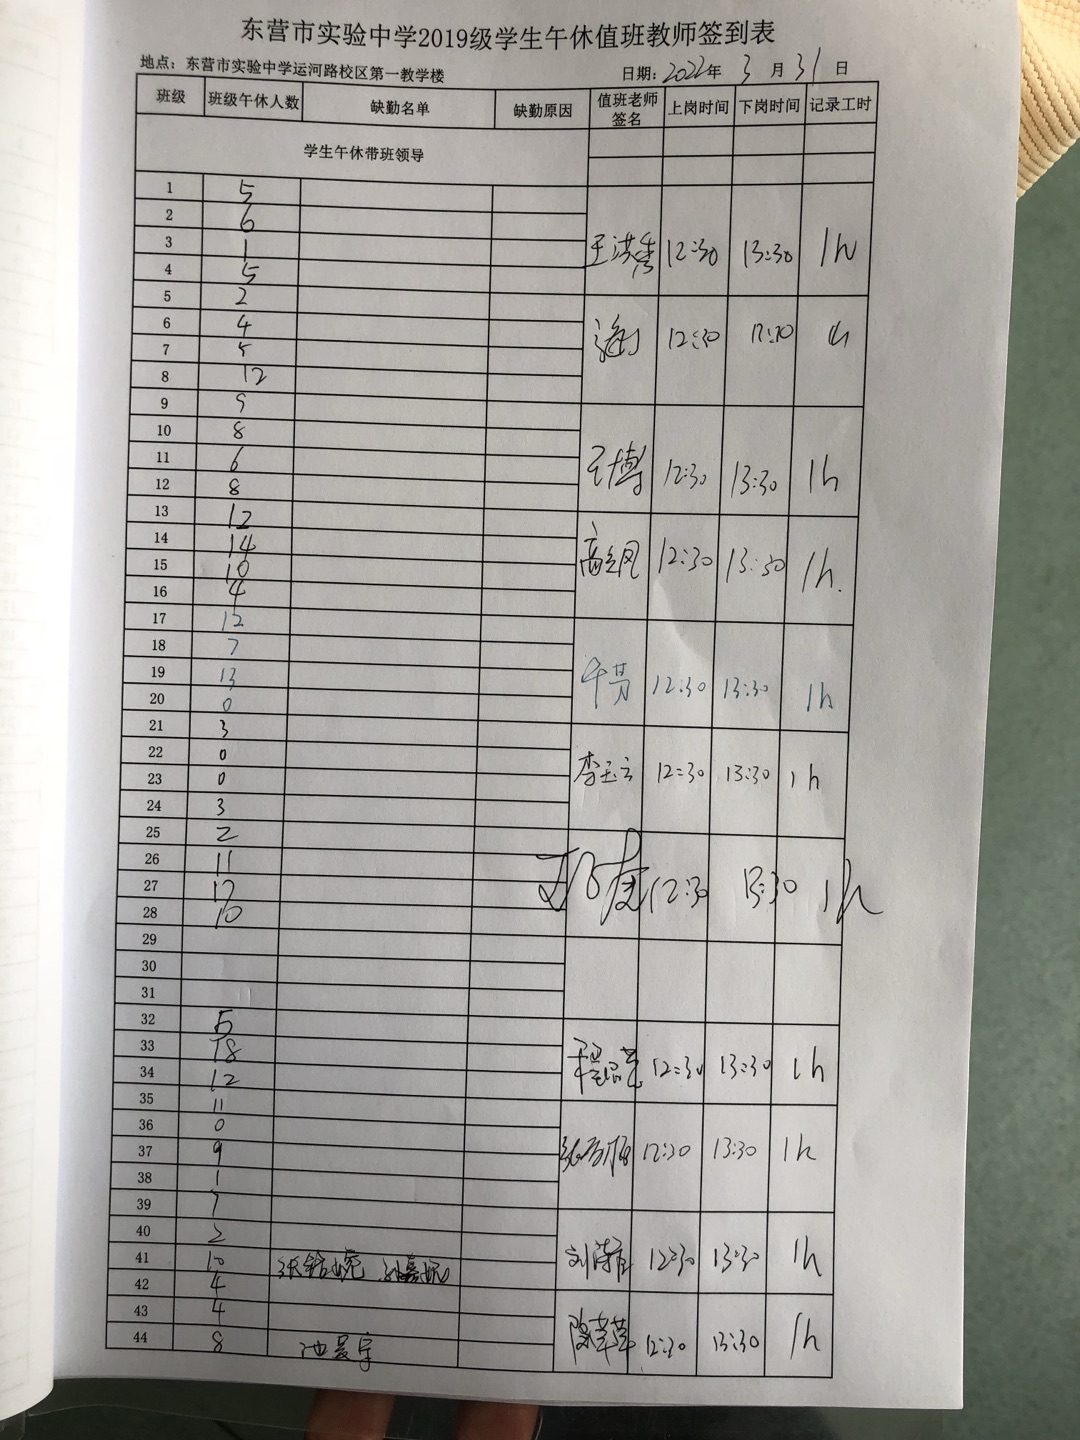 东营市实验中学2019级学生午休值班教师签到表
地点: 东营市实验中学运河路校区第一教学楼 日期: 2022年 3 月 31 日
班级 班级午休人数 缺勤名单 缺勤原因 值班老师签名 上岗时间 下岗时间 记录工时
学生午休带班领导
1 5
2 6
3 1 王洪秀 12:30 13:30 1h
4 5
5 2
6 4 12:30
7 5
8 12
9 9
10 8
11 6 王博 12:30 13:30 1h
12 8
13 12
14 14
15 10 12:30 13:30 1h.
16 4
17 12
18 7
19 13 12:30 13:30 1h
20 0
21 3
22 0
23 0 李玉云 12:30 13:30 1h
24 3
25 2
26 11
27 12:30 13:30 1h
28 10
29
30
31
32 5
33 18 12:30 13:30 1h
34 12
35 11
36 0
37 9 12:30 13:30 1h
38 1
39 7
40 2
41 10 12:30 13:30 1h
42 4
43 4
44 8 陈苹苹 12:30 13:30 1h